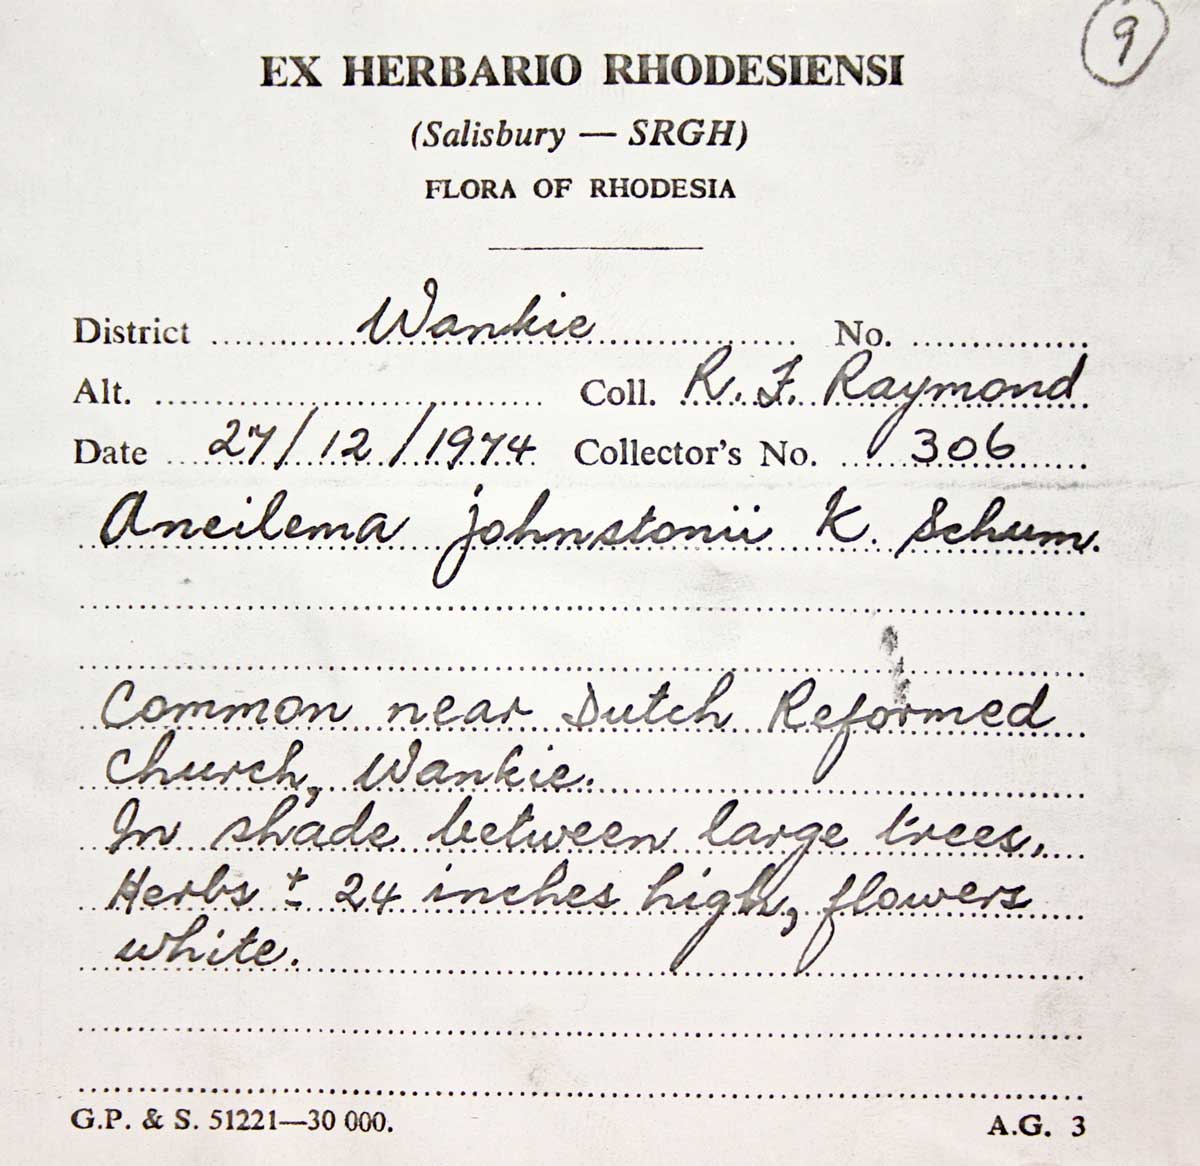 9
EX HERBARIO RHODESIENSI
(Salisbury — SRGH)
FLORA OF RHODESIA
District Wankie No.
Alt. Coll. R. F. Raymond
Date 27/12/1974 Collector's No. 306
Aneilema johnstonii K. Schum.
Common near Dutch Reformed
Church, Wankie.
In shade between large trees.
Herbs ± 24 inches high, flowers
white.
G.P. & S. 51221—30 000. A.G. 3